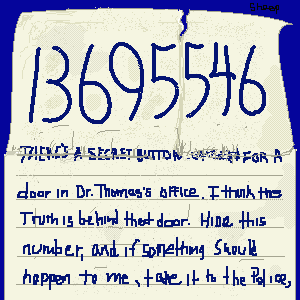 13695546
THERE'S A SECRET BUTTON FOR A
door in Dr. Thomas's office. I think the
Truth is behind that door. Hide this
number, and if something Should
happen to me, take it to the Police,